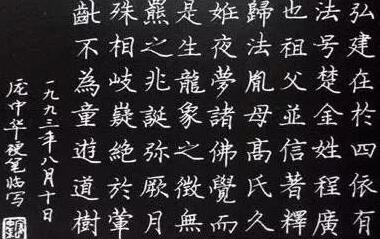 弘建在於四依有
法号楚金姓程廣
也祖父並信著釋
歸法胤母髙氏久
姙夜夢諸佛覺而
是生龍象之徵無
羆之兆誕弥厥月
殊相岐嶷絕於葷
齔不為童遊道樹
一九九三年八月十日
庞中华硬笔临写